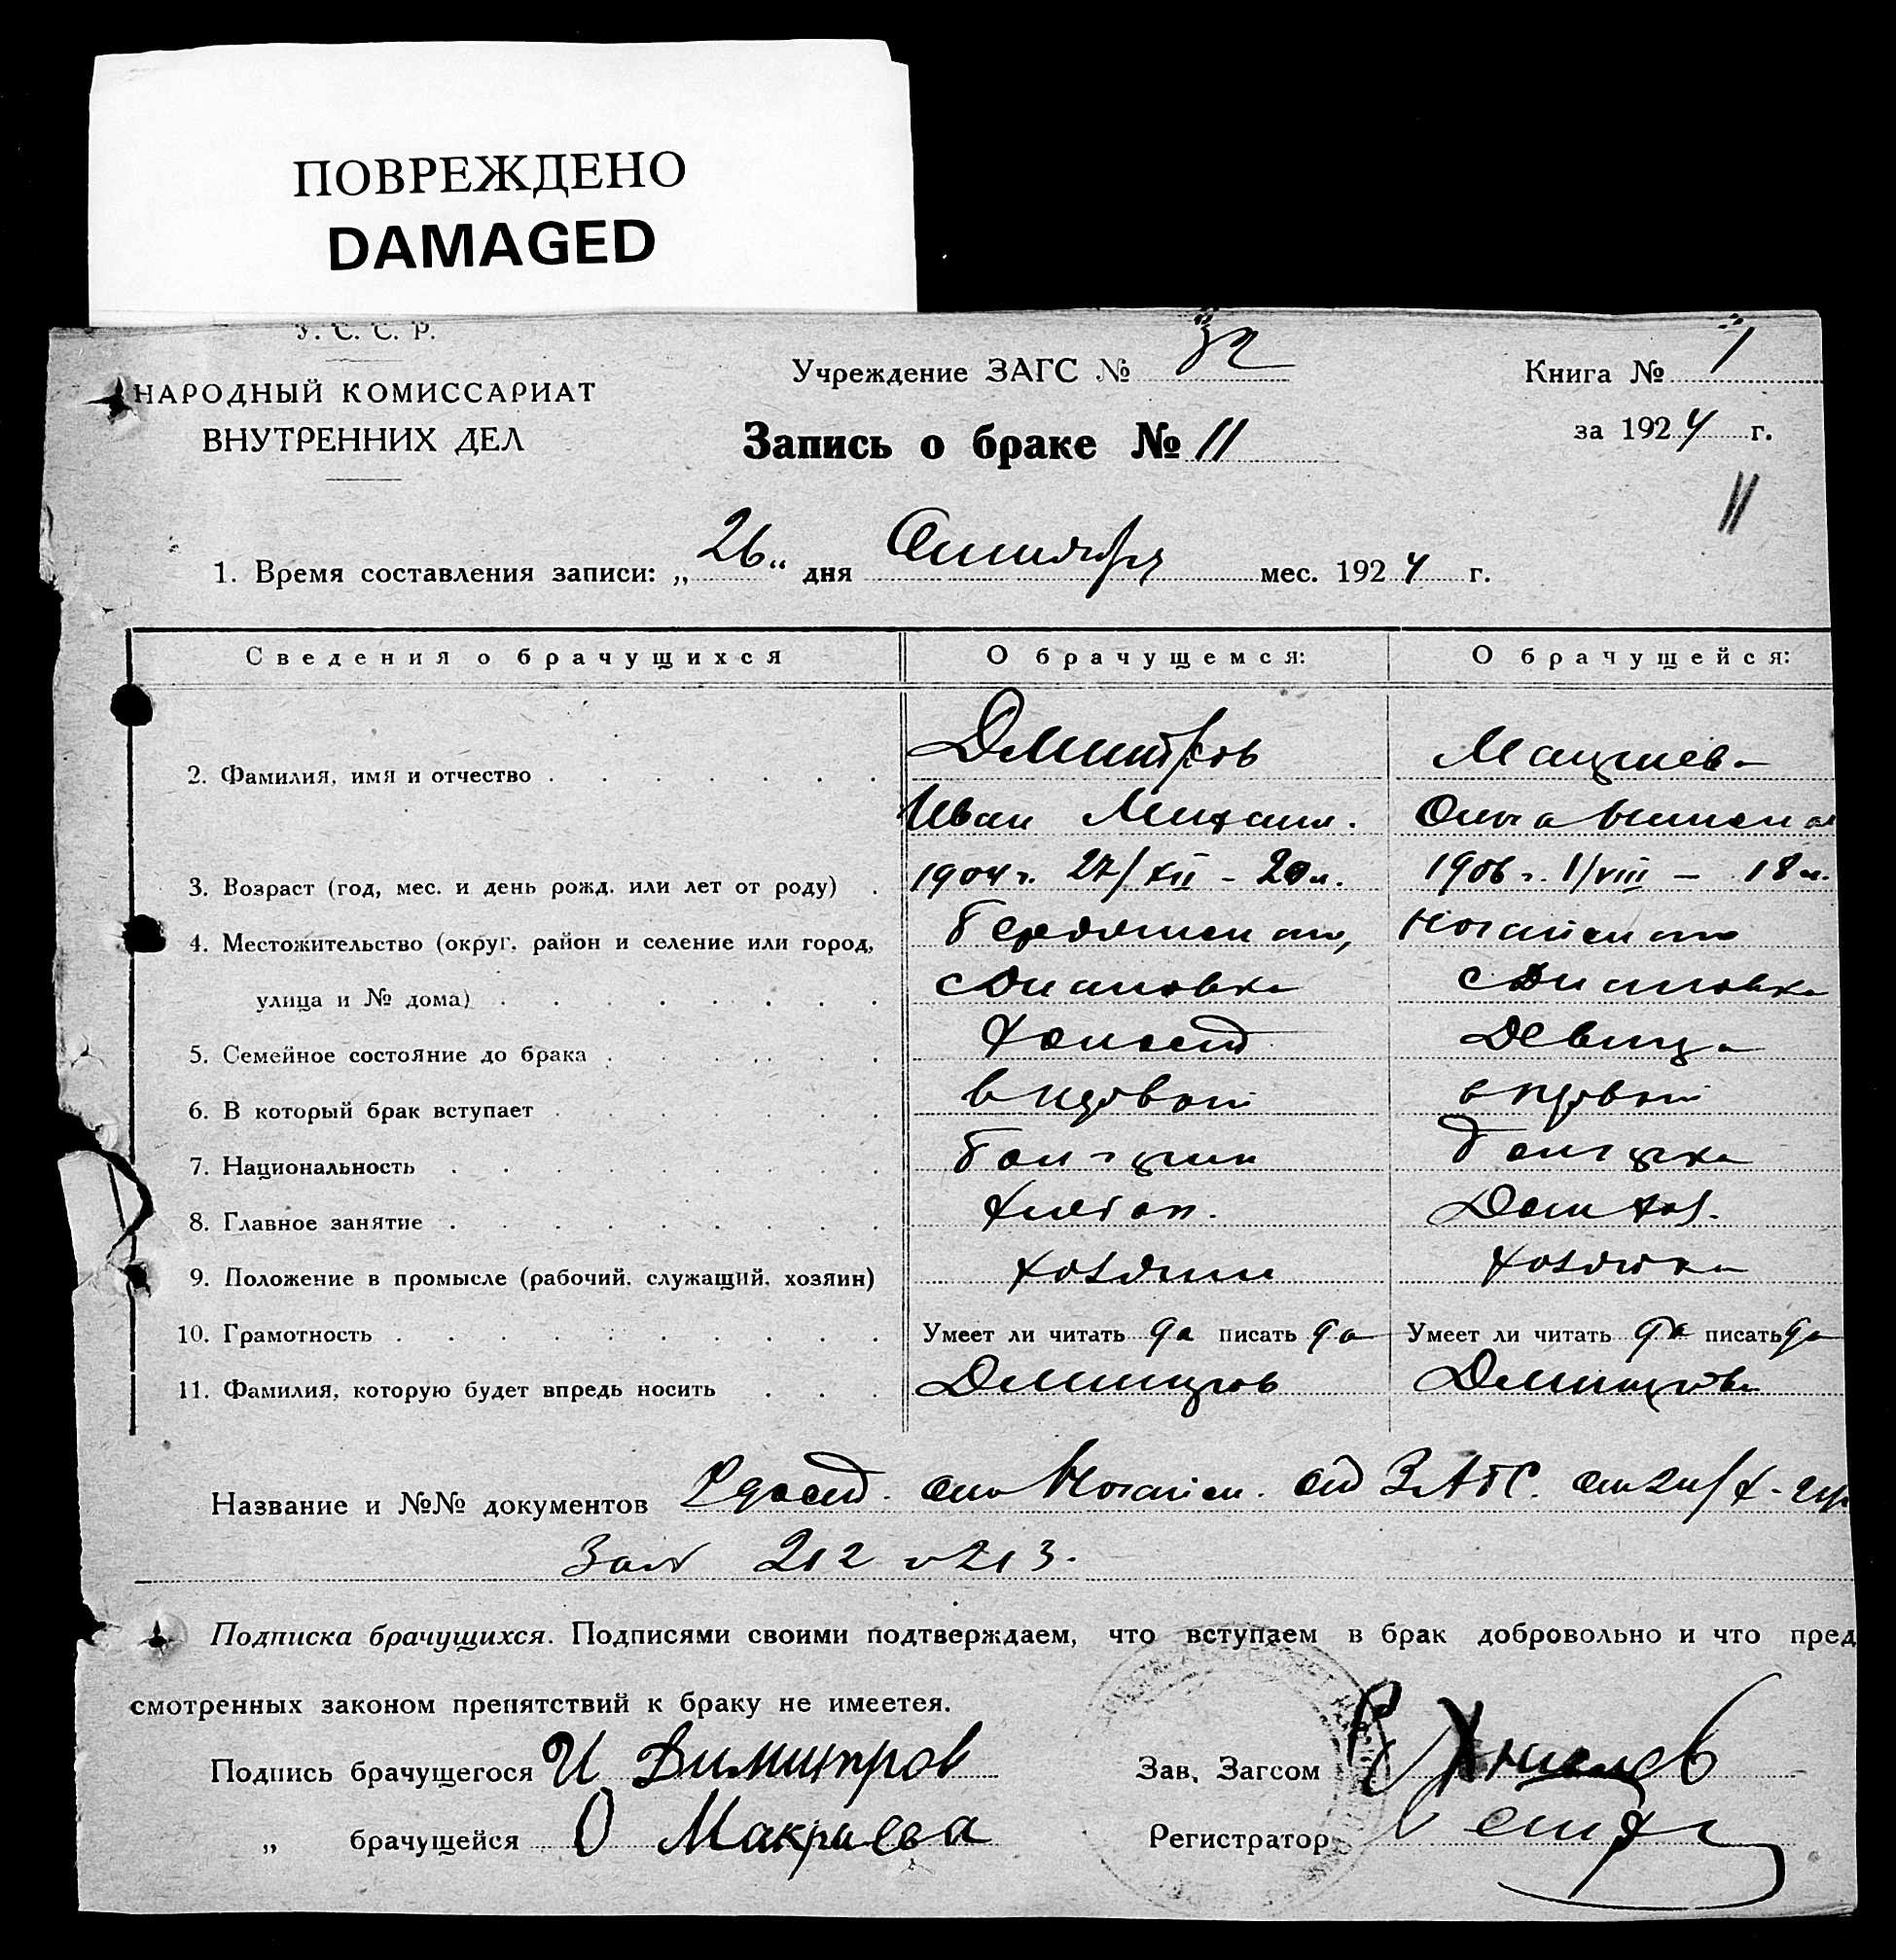 ПОВРЕЖДЕНО
DAMAGED
У. С. С. Р.
НАРОДНЫЙ КОМИССАРИАТ
ВНУТРЕННИХ ДЕЛ
Учреждение ЗАГС № 32
Книга № 1
за 1924 г.
Запись о браке № 11
11
1. Время составления записи: „26„ дня мес. 1924 г.
Сведения о брачущихся О брачущемся: О брачущейся:
2. Фамилия, имя и отчество Дмитров
Иван Михаил. Ольга
3. Возраст (год, мес. и день рожд. или лет от роду) 1904 г. 27/XII - 20 л. 1906 г. 1/VIII - 18 л.
4. Местожительство (округ, район и селение или город,
улица и № дома) с Диановка с Диановка
5. Семейное состояние до брака Холост Девица
6. В который брак вступает в первый в первый
7. Национальность болгарин болгарка
8. Главное занятие хлебоп. Дом хоз.
9. Положение в промысле (рабочий, служащий, хозяин) хозяин хозяйка
10. Грамотность Умеет ли читать да писать да Умеет ли читать да писать да
11. Фамилия, которую будет впредь носить Димитров Димитрова
Название и №№ документов Удост. от Ногайск. ЗАГС. от
212 и 213.
Подписка брачущихся. Подписями своими подтверждаем, что вступаем в брак добровольно и что пред
смотренных законом препятствий к браку не имеется.
Подпись брачущегося И Димитров
Зав. Загсом
„ брачущейся О Макриева
Регистратор